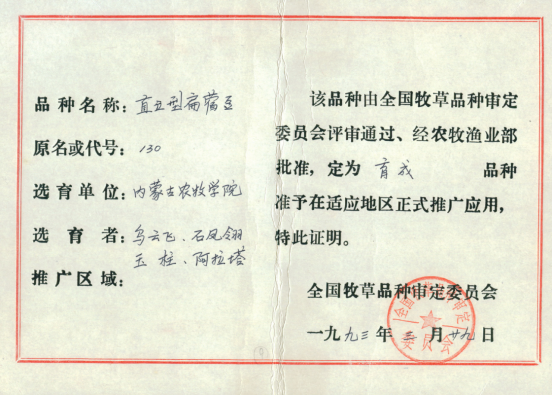 品种名称：直立型扁蓿豆
原名或代号：130
选育单位：内蒙古农牧学院
选育者：乌云飞、石凤翎
玉柱、阿拉塔
推广区域：
该品种由全国牧草品种审定
委员会评审通过、经农牧渔业部
批准，定为 育成 品种
准予在适应地区正式推广应用，
特此证明。
全国牧草品种审定委员会
一九九三年三月廿九日
全国牧草品种审定
委员会